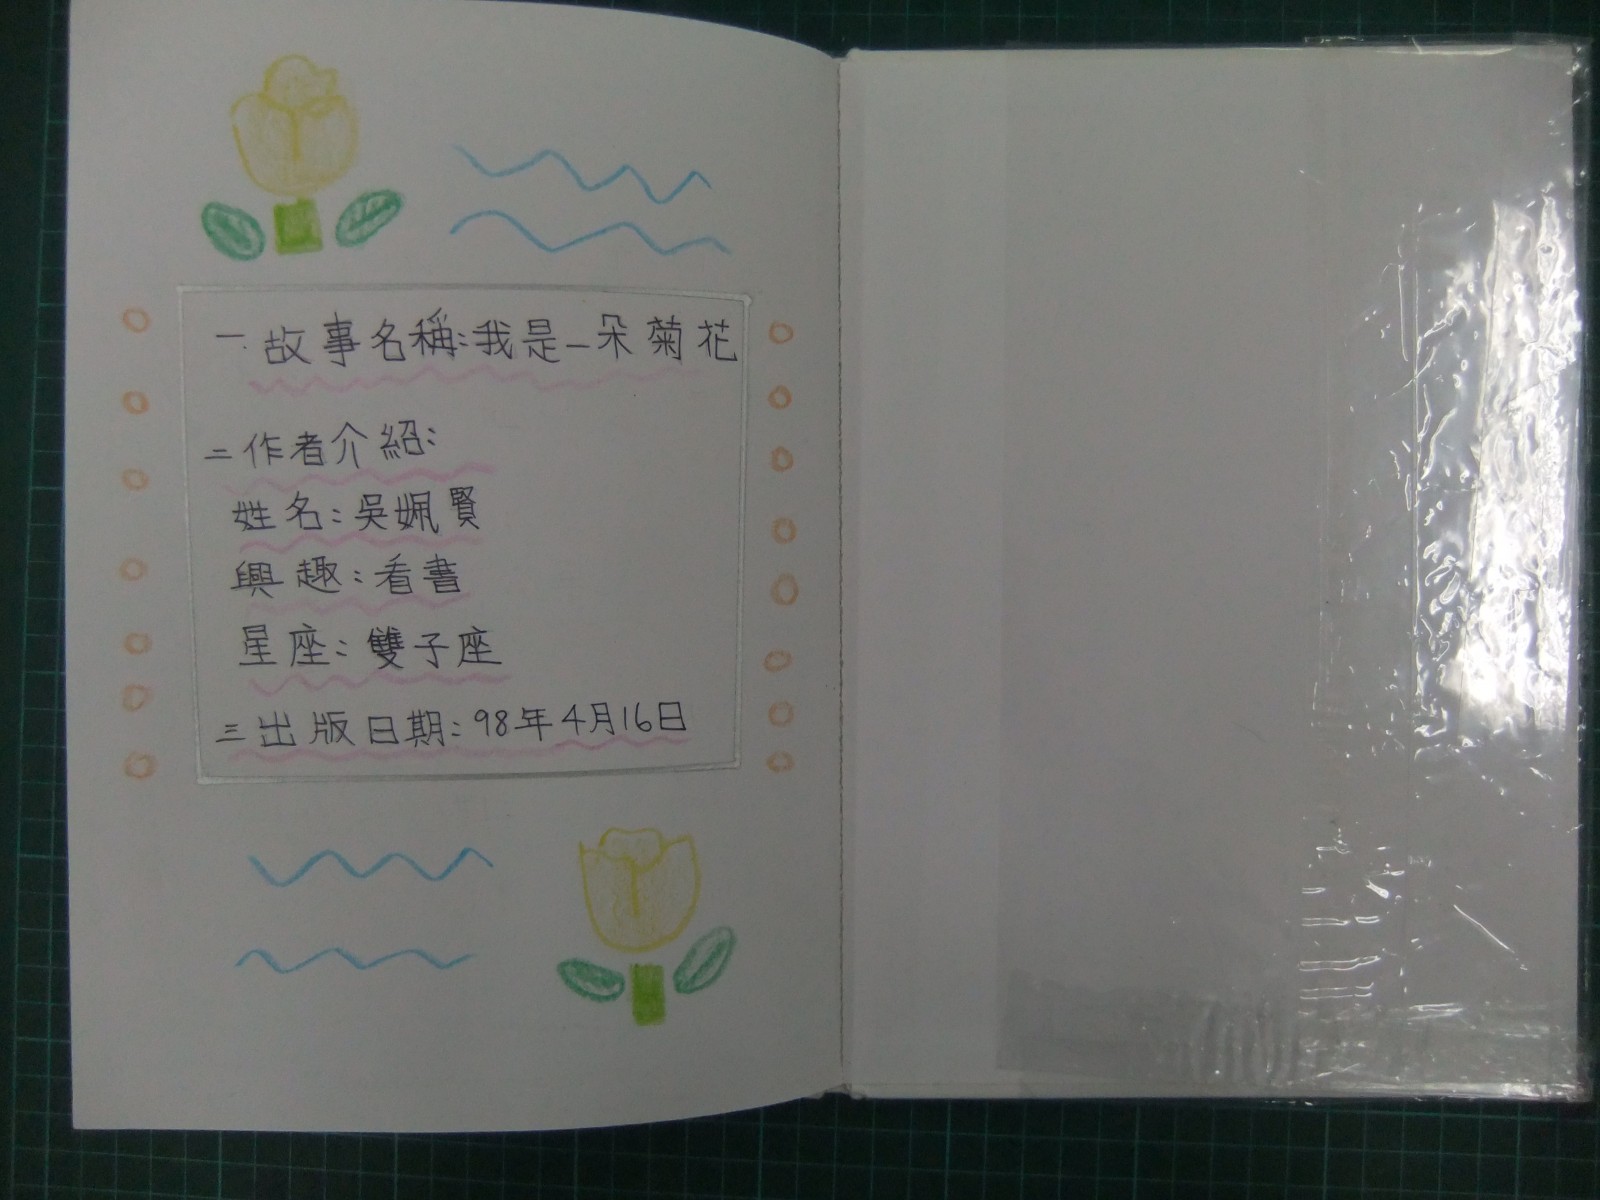 一.故事名稱:我是一朵菊花
二作者介紹:
姓名:吳姵賢
興趣:看書
星座:雙子座
三出版日期:98年4月16日